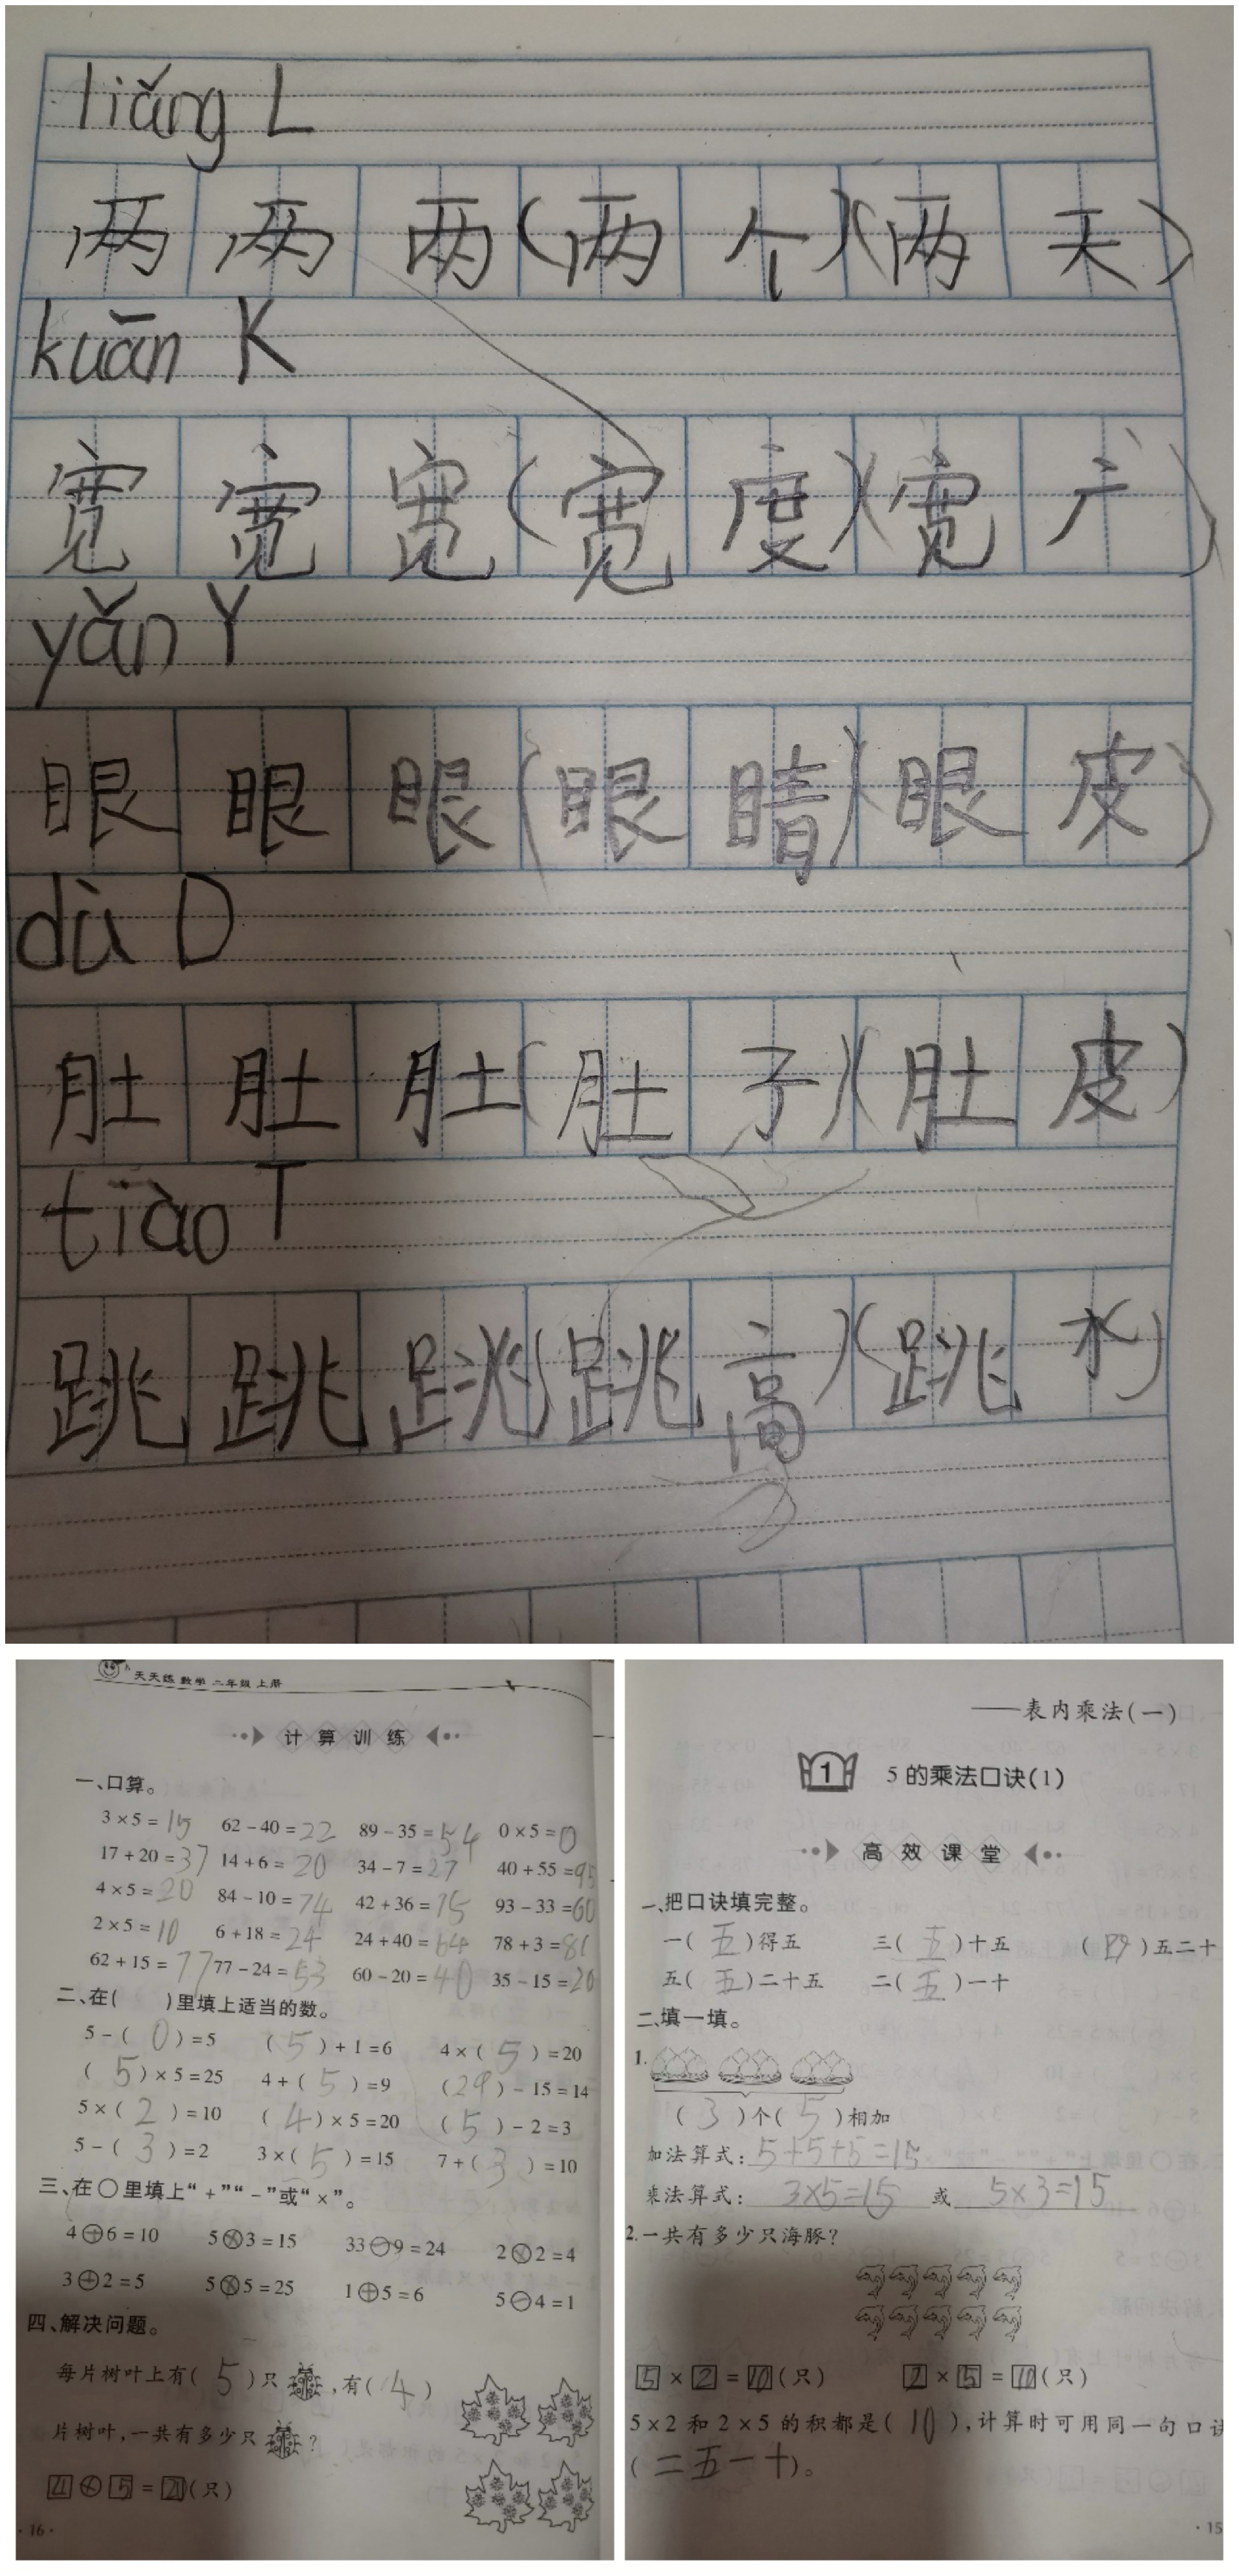 liǎng L
两 两 两 (两 个) (两 天)
kuān K
宽 宽 宽 (宽 度) (宽 广)
yǎn Y
眼 眼 眼 (眼 睛) (眼 皮)
dù D
肚 肚 肚 (肚 子) (肚 皮)
tiào T
跳 跳 跳 (跳 高) (跳 水)
天天练 数学 二年级 上册
计算训练
一、口算。
3×5=15 62-40=22 89-35=54 0×5=0
17+20=37 14+6=20 34-7=27 40+55=95
4×5=20 84-10=74 42+36=75 93-33=60
2×5=10 6+18=24 24+40=64 78+3=81
62+15=77 77-24=53 60-20=40 35-15=20
二、在( )里填上适当的数。
5-(0)=5 (5)+1=6 4×(5)=20
(5)×5=25 4+(5)=9 (29)-15=14
5×(2)=10 (4)×5=20 (5)-2=3
5-(3)=2 3×(5)=15 7+(3)=10
三、在○里填上“+”“-”或“×”。
4⊕6=10 5⊗3=15 33⊖9=24 2⊗2=4
3⊕2=5 5⊗5=25 1⊕5=6 5⊖4=1
四、解决问题。
每片树叶上有(5)只,有(4)
片树叶,一共有多少只?
4⊗5=20(只)
·16·
——表内乘法(一)
1 5的乘法口诀(1)
高效课堂
一、把口诀填完整。
一(五)得五 三(五)十五 (四)五二十
五(五)二十五 二(五)一十
二、填一填。
1.
(3)个(5)相加
加法算式:5+5+5=15
乘法算式:3×5=15 或 5×3=15
2.一共有多少只海豚?
5×2=10(只) 2×5=10(只)
5×2和2×5的积都是(10),计算时可用同一句口诀
(二五一十)。
·15